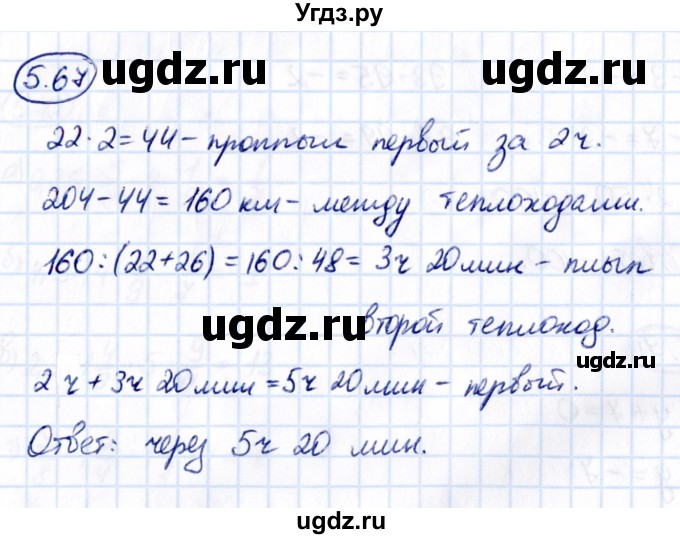 Угдз.ру
5.67
ugdz.ru ugdz.ru
22·2=44 – проплыл первый за 2ч.
204-44=160км – между теплоходами.
160:(22+26)=160:48=3ч 20мин – плыл
ugdz.ru
второй теплоход.
ugdz.ru
2ч+3ч 20мин=5ч 20мин – первый.
Ответ: через 5ч 20 мин.
ugdz.ru
ugdz.ru